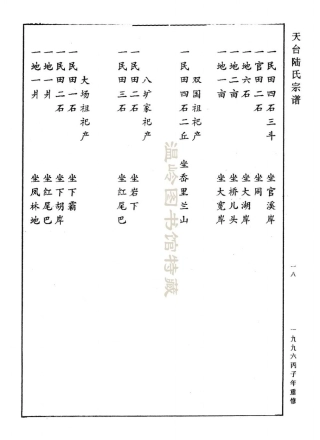 天台陆氏宗谱
一八
一九九六丙子年重修
一民田四石三斗 坐官溪岸
一官田二石 坐周
一地六石 坐大湖岸
一地二亩 坐桥儿头
一地一亩 坐大宽岸
双国祖祀产
一民田四石二丘 坐岙里兰山
八圹家祖祀产
一民田二石 坐岩下
一民田三石 坐红尾巴
大场祖祀产
一民田一石 坐下霸
一民田二石 坐下胡岸
一地一爿 坐红尾巴
一地一爿 坐凤林地
温岭图书馆特藏